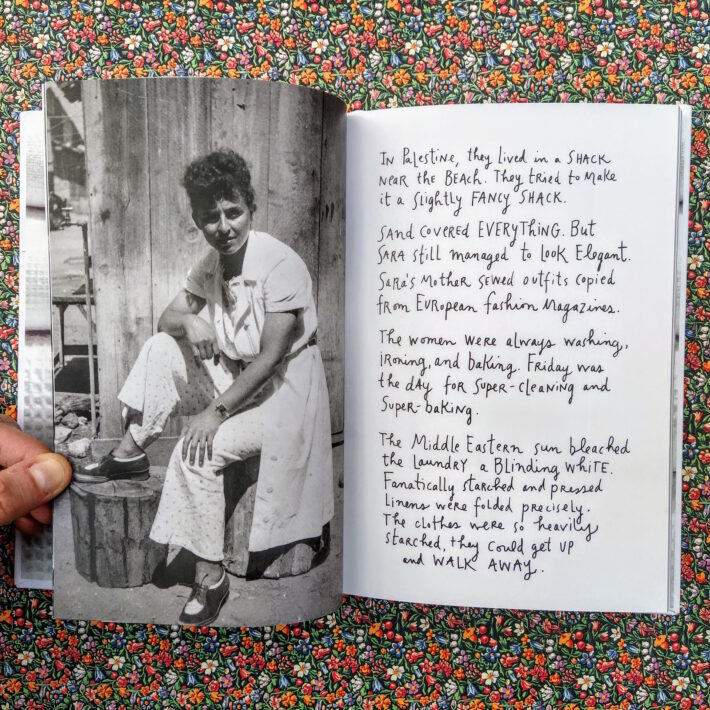 IN PaLesTiNe, they Lived in a SHACK
NeaR the BEACH. They tried to Make
it a Slightly FANCY SHACK.
SAND COVERED EVERYTHING. But
SARA still managed to look Elegant.
SARA's Mother sewed outfits copied
from EUROPEAN fashion Magazines.
The women were always washing,
iRONING, and baking. FRiday was
the dAy foR SupeR-cleaNiNg and
SupeR-baking.
The Middle EasteRN sun bleached
the LauNdRy a BLiNdiNg wHiTE.
Fanatically starched and pressed
LiNeNs were folded precisely.
The clothes were so heavily
starched, they could get UP
and WALK AWAY.